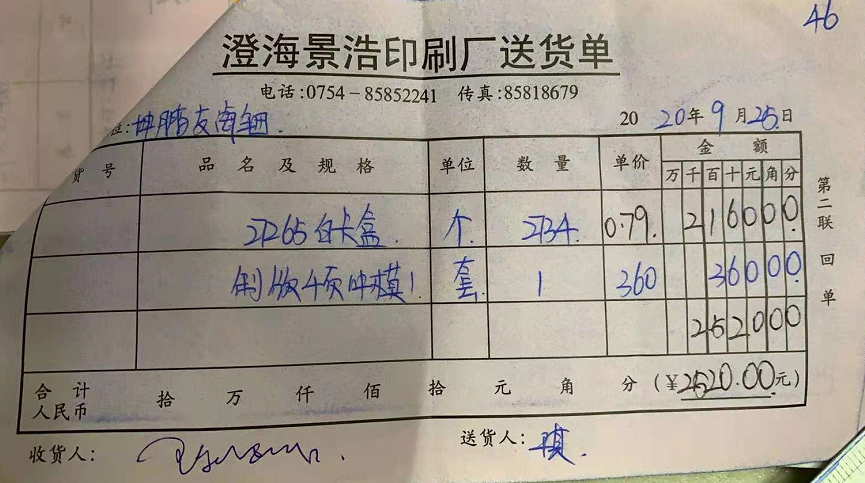 46
澄海景浩印刷厂送货单
电话:0754-85852241 传真:85818679
位:坤鹏友 2020年9月25日
货号 品名及规格 单位 数量 单价 金额
万千百十元角分
27265白卡盒. 个. 2734. 0.79. 216000
制版 冲模1. 套. 1 360 36000
252000
合计人民币 拾万仟佰拾元角分(¥2520.00元)
收货人: 送货人:
第二联回单